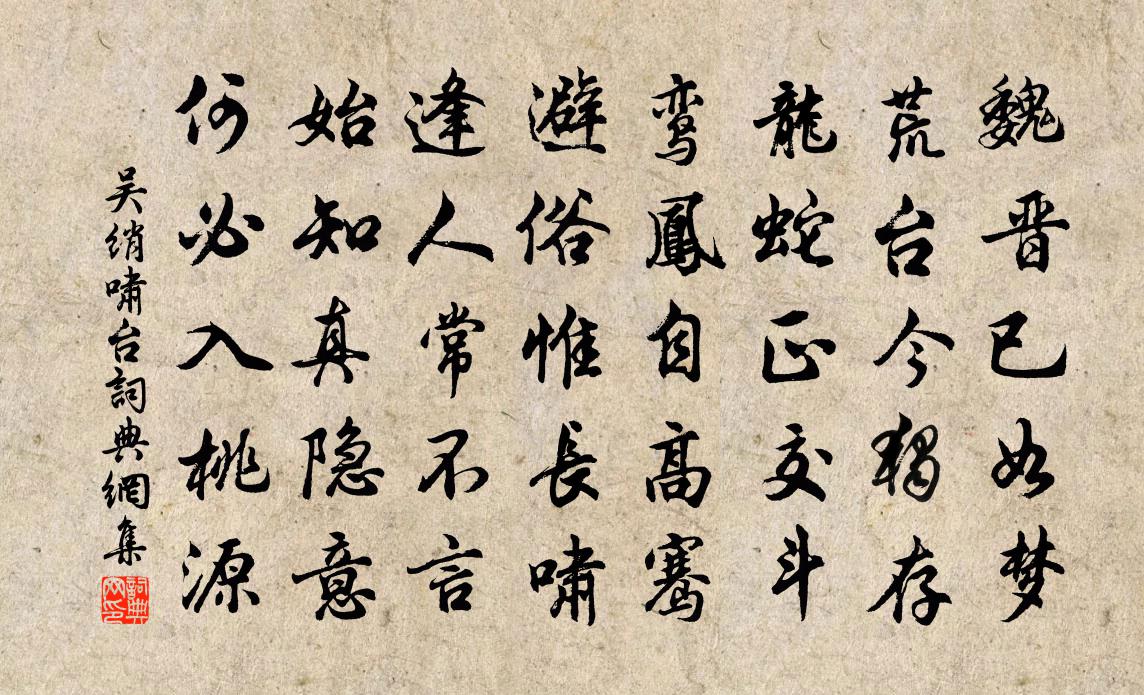 魏晋已如梦
荒台今獨存
龍蛇正交斗
鸾鳳自高骞
避俗惟長啸
逢人常不言
始知真隐意
何必入桃源
吴绡啸台詞典網集
詞典网印